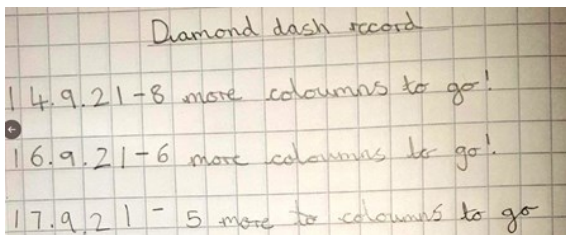 Diamond dash record
14.9.21-8 more coloumns to go!
16.9.21-6 more coloumns to go!
17.9.21 - 5 more to coloumns to go